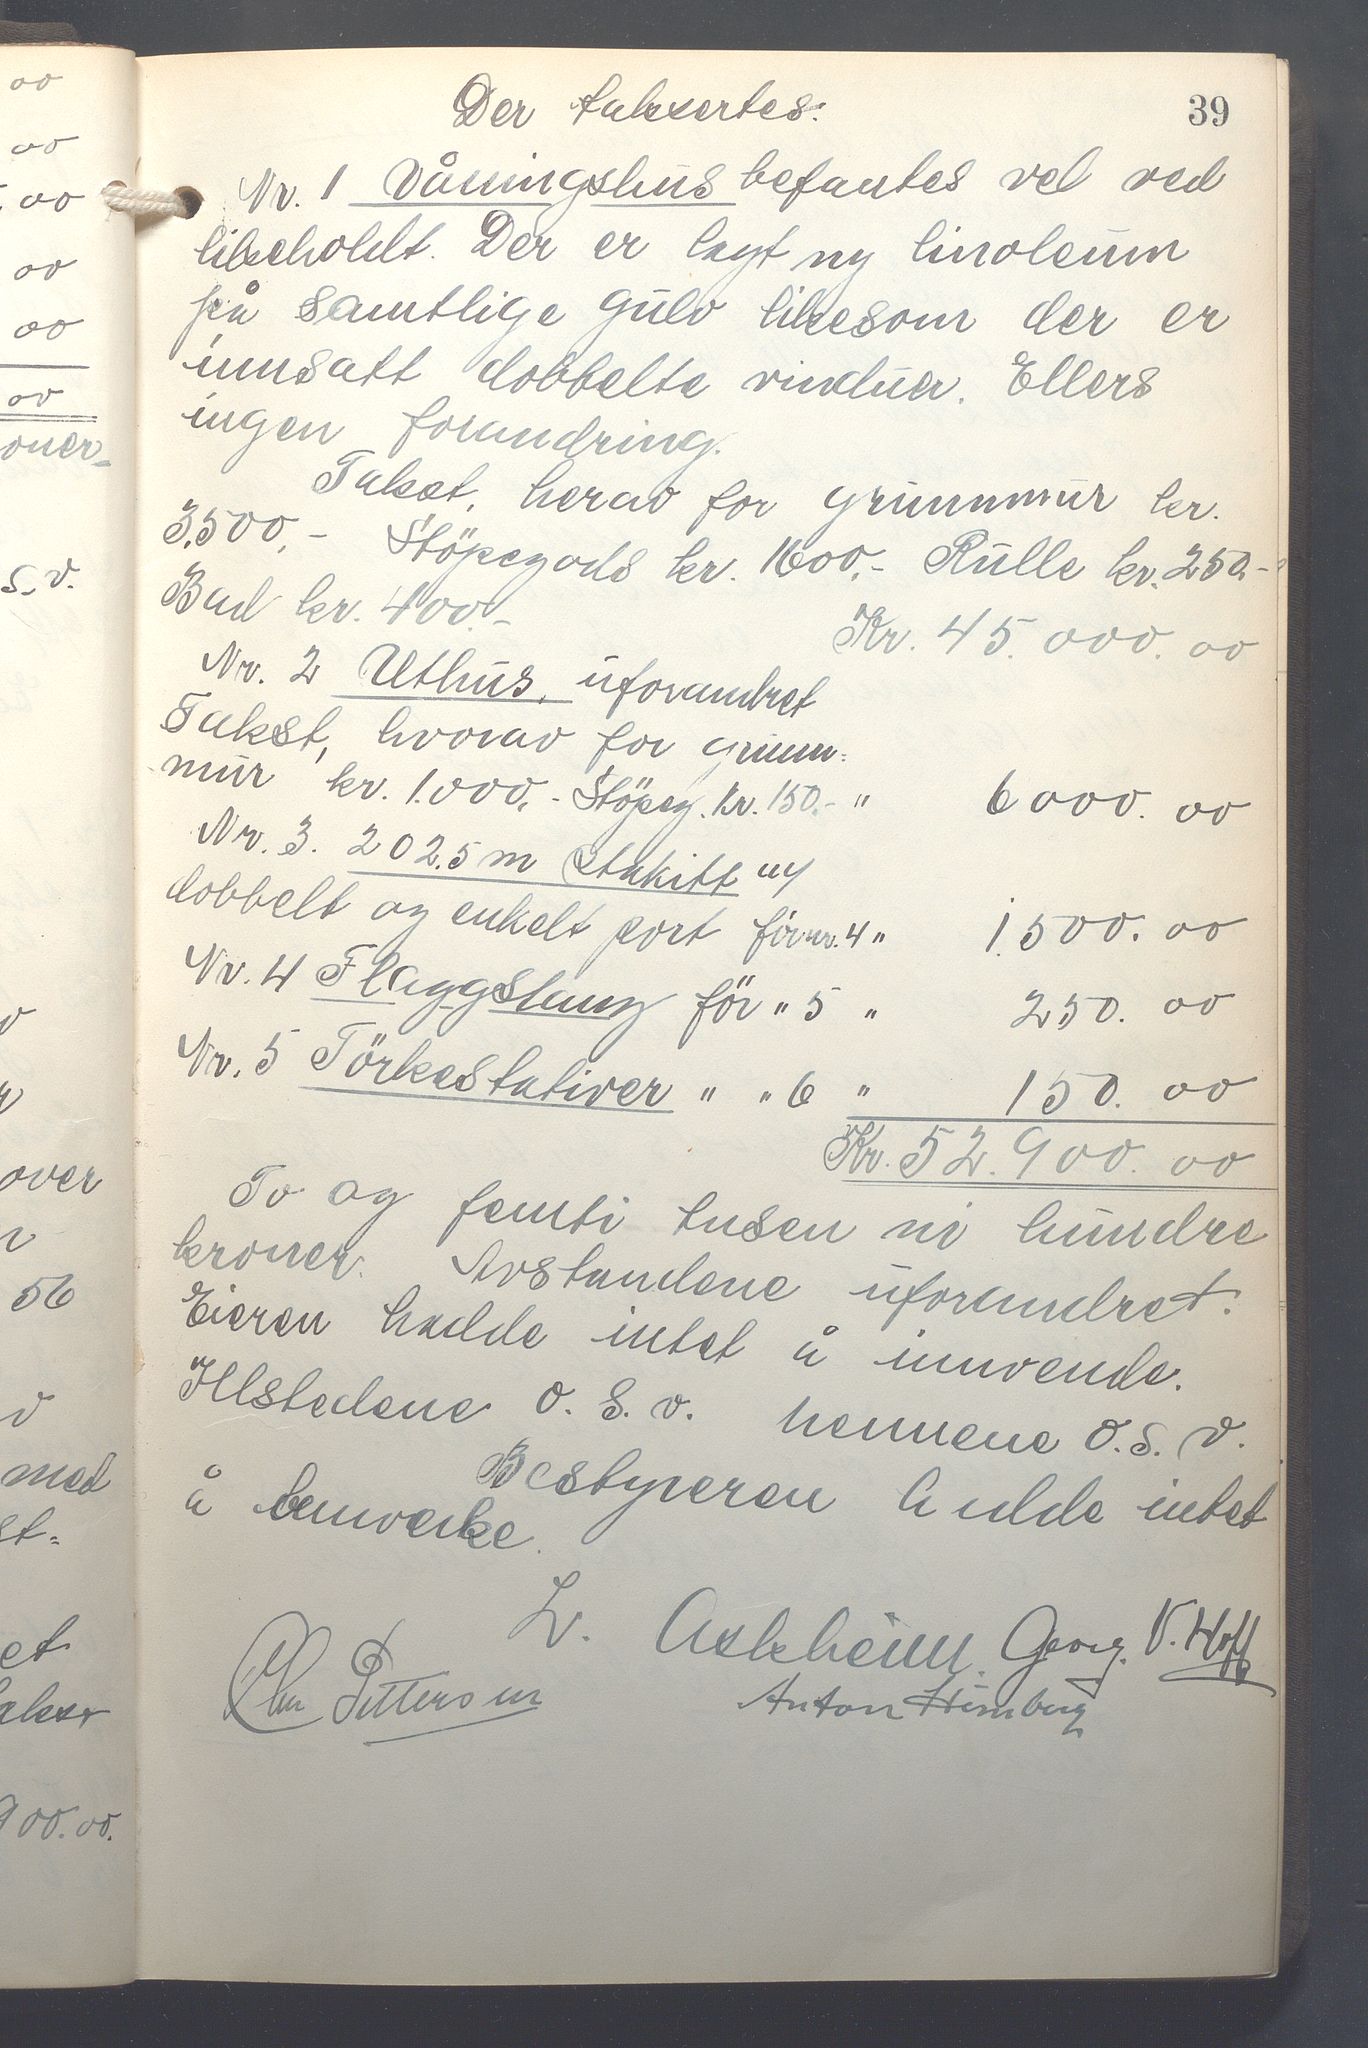 39
Der takseres:
Nr. 1 Våningshus befantes vel ved
likeholdt. Der er lagt ny linoleum
på samtlige gulv likesom der er
innsatt dobbelte vinduer. Ellers
ingen forandring.
Takst, herav for grunnmur kr.
3.500,- Støpegods kr. 1600,- Rulle kr. 250,-
Bad kr. 400,- Kr. 45.000.00
Nr. 2 Uthus, uforandret
Takst, hvorav for grunn-
mur kr. 1.000,- Støpeg. kr. 150,- " 6000.00
Nr. 3. 202.5 m Stakitt m/
dobbelt og enkelt port før nr. 4 " 1.500.00
Nr. 4 Flaggstang før " 5 " 250.00
Nr. 5 Tørkestativer " " 6 " 150.00
Kr. 52.900.00
To og femti tusen ni hundre
kroner. Avstandene uforandret.
Eieren hadde intet å innvende.
Ildstedene o.s.v. hennene o.s.v.
Bestyreren hadde intet
å bemerke.
L. Askheim. Georg. V. Hoff
Chr Pettersen Anton Stenberg